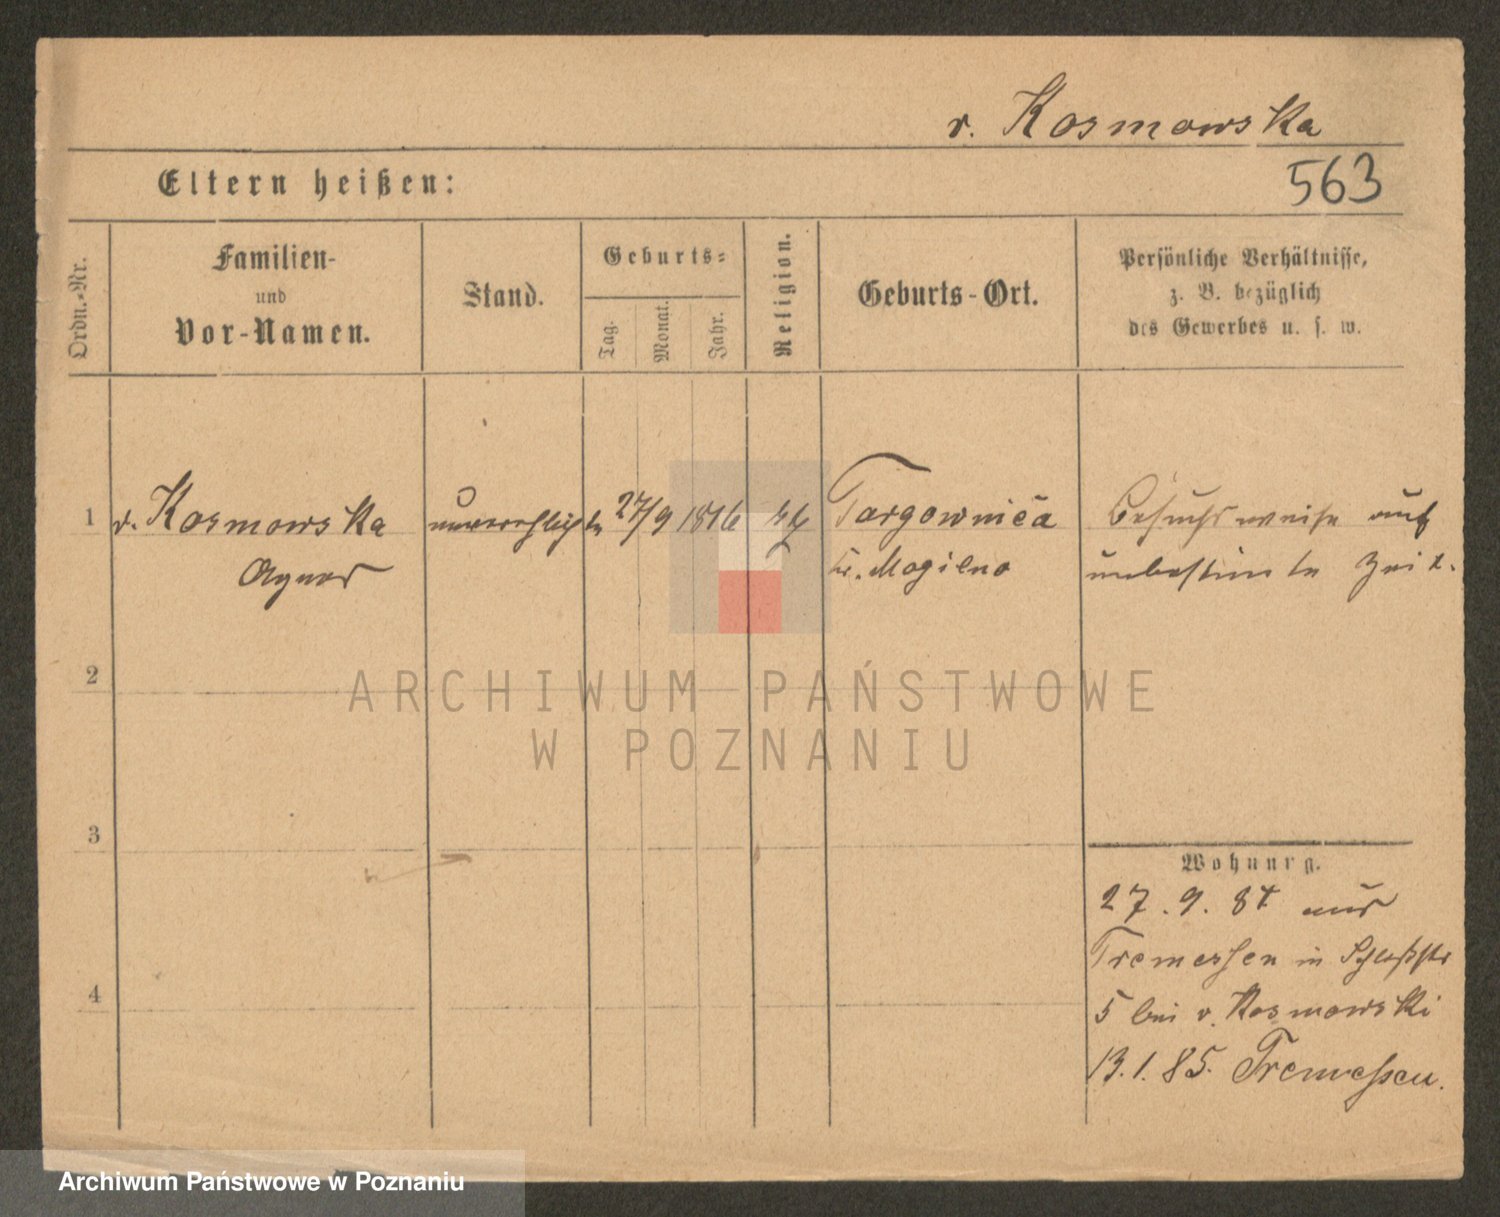 v. Kosmowska
Eltern heißen:
563
Ordn.-Nr.
Familien-
und
Vor-Namen.
Stand.
Geburts-
Tag.
Monat.
Jahr.
Religion.
Geburts-Ort.
Persönliche Verhältnisse,
z. B. bezüglich
des Gewerbes u. s. w.
1 v. Kosmowska unverehlichte 27/9 1816 Targownica
Agnes Kr. Mogilno
Besuchsweise auf
unbestimte Zeit.
2
3
4
Wohnung.
27.9.84 aus
Tremessen in Schloßstr
5 bei v. Kosmowski
13.1.85. Tremessen.
ARCHIWUM PAŃSTWOWE
W POZNANIU
Archiwum Państwowe w Poznaniu